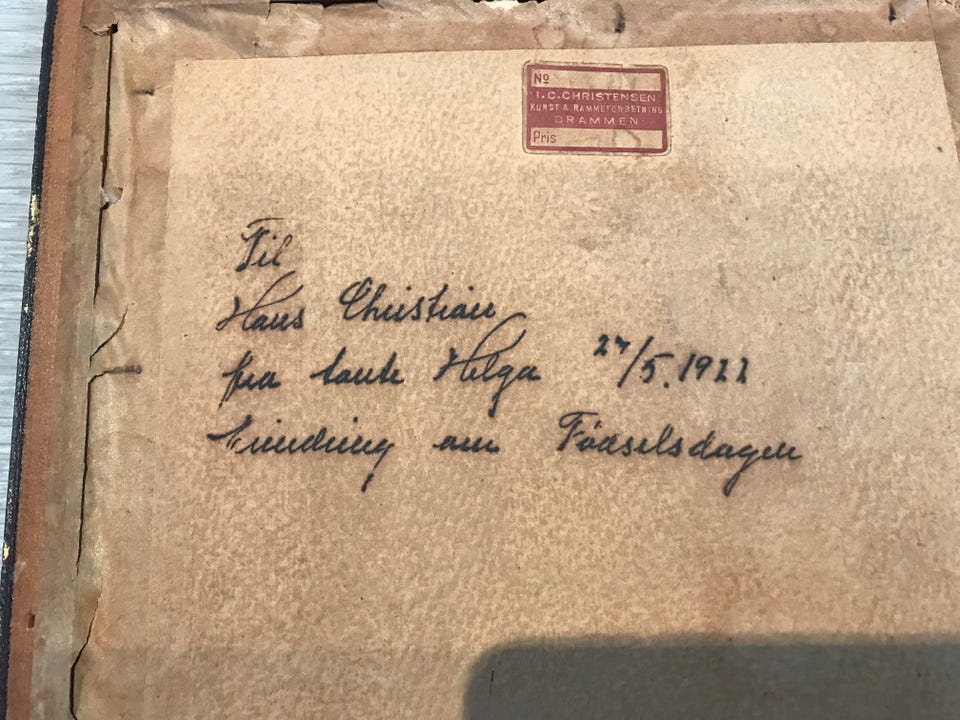 Nº
I.C.CHRISTENSEN
KUNST & RAMMEFORRETNING
DRAMMEN
Pris
Til
Hans Christian
fra tante Helga 27/5.1922
Erindring om Fødselsdagen